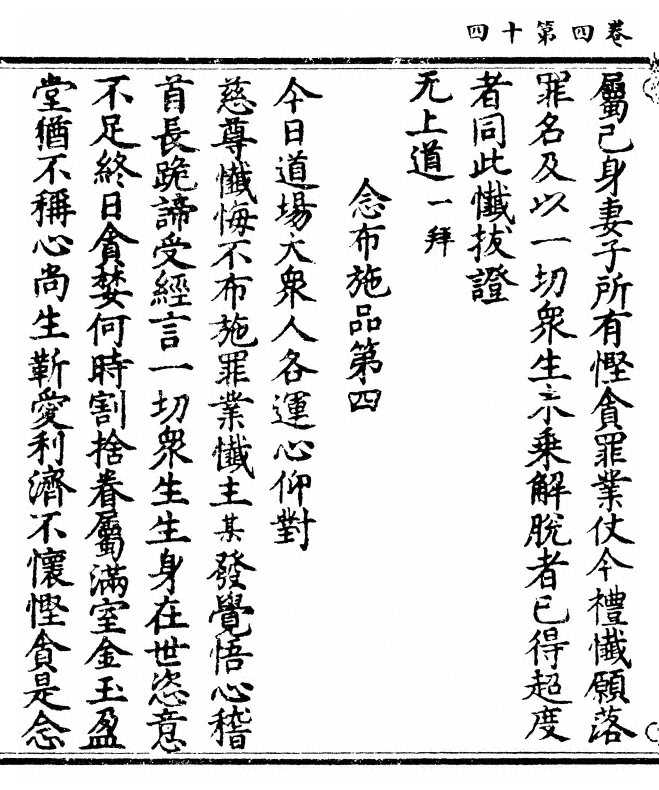 卷四第十四
屬己身妻子所有慳貪罪業仗今禮懺願落
罪名及以一切衆生示乘解脫者已得超度
者同此懺拔證
无上道一拜
念布施品第四
今日道場大衆人各運心仰對
慈尊懺悔不布施罪業懺主某發覺悟心稽
首長跪諦受經言一切衆生生身在世恣意
不足終日貪婪何時割捨眷屬滿室金玉盈
堂猶不稱心尚生靳愛利濟不懷慳貪是念